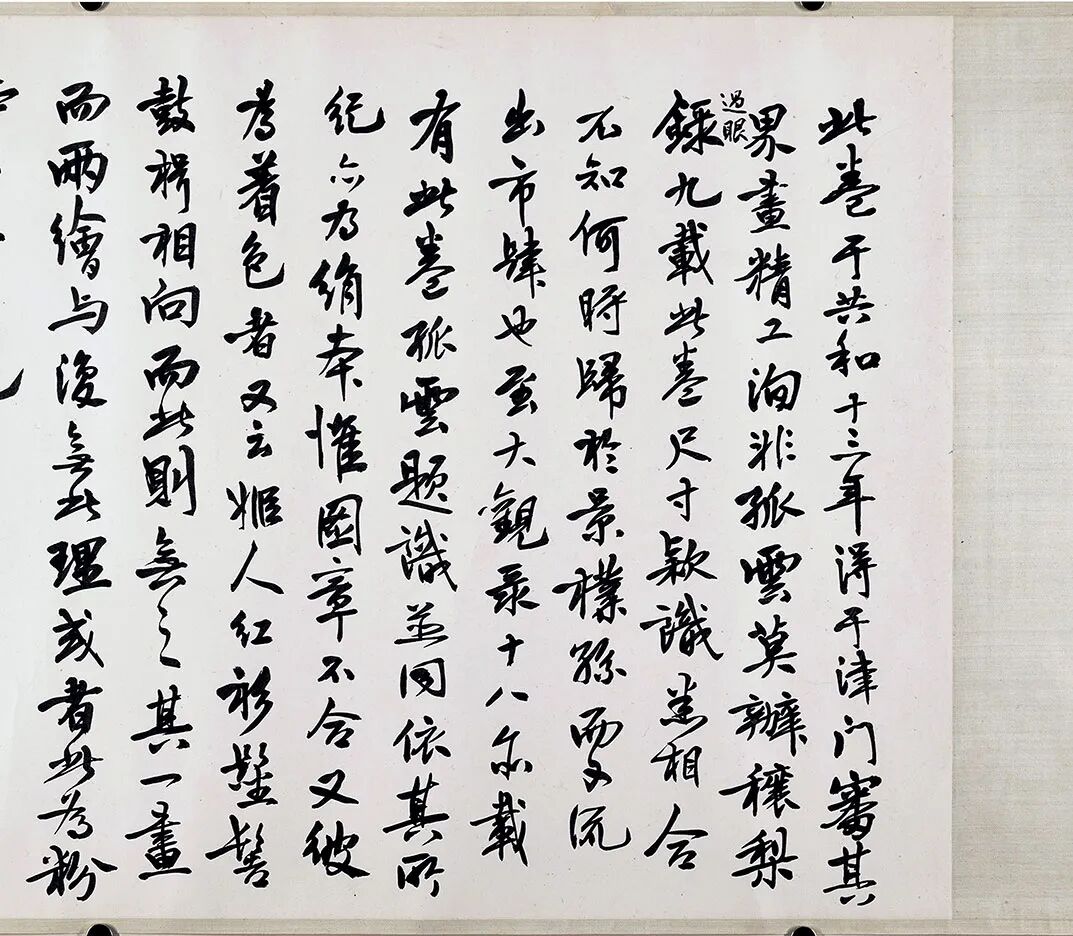 此卷于共和十三年得于津門審其
界畫精工洵非孤雲莫辦穰梨
過眼
錄九載此卷尺寸款識悉相合
不知何時歸於景樸孫而又流
出市肆也至大觀录十八亦載
有此卷孤雲題識並同依其所
紀亦为絹本惟圖章不合又彼
為着色者又云姬人红衫髽髻
鼓
相向而此則無之其一畫
而兩繪与複無此理或者此為粉